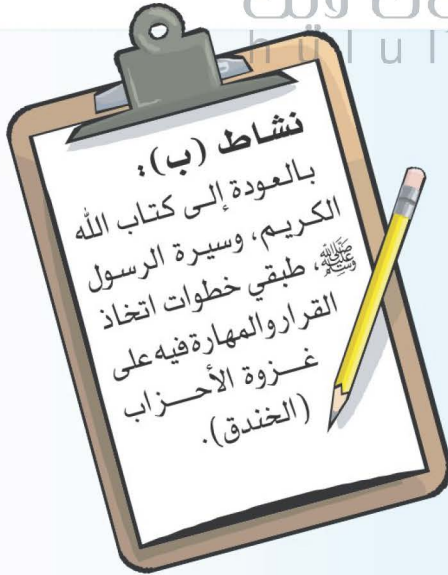 hulul
نشاط (ب):
بالعودة إلى كتاب الله
الكريم، وسيرة الرسول
ﷺ، طبقي خطوات اتخاذ
القرار والمهارة فيه على
غـزوة الأحـزاب
(الخندق).